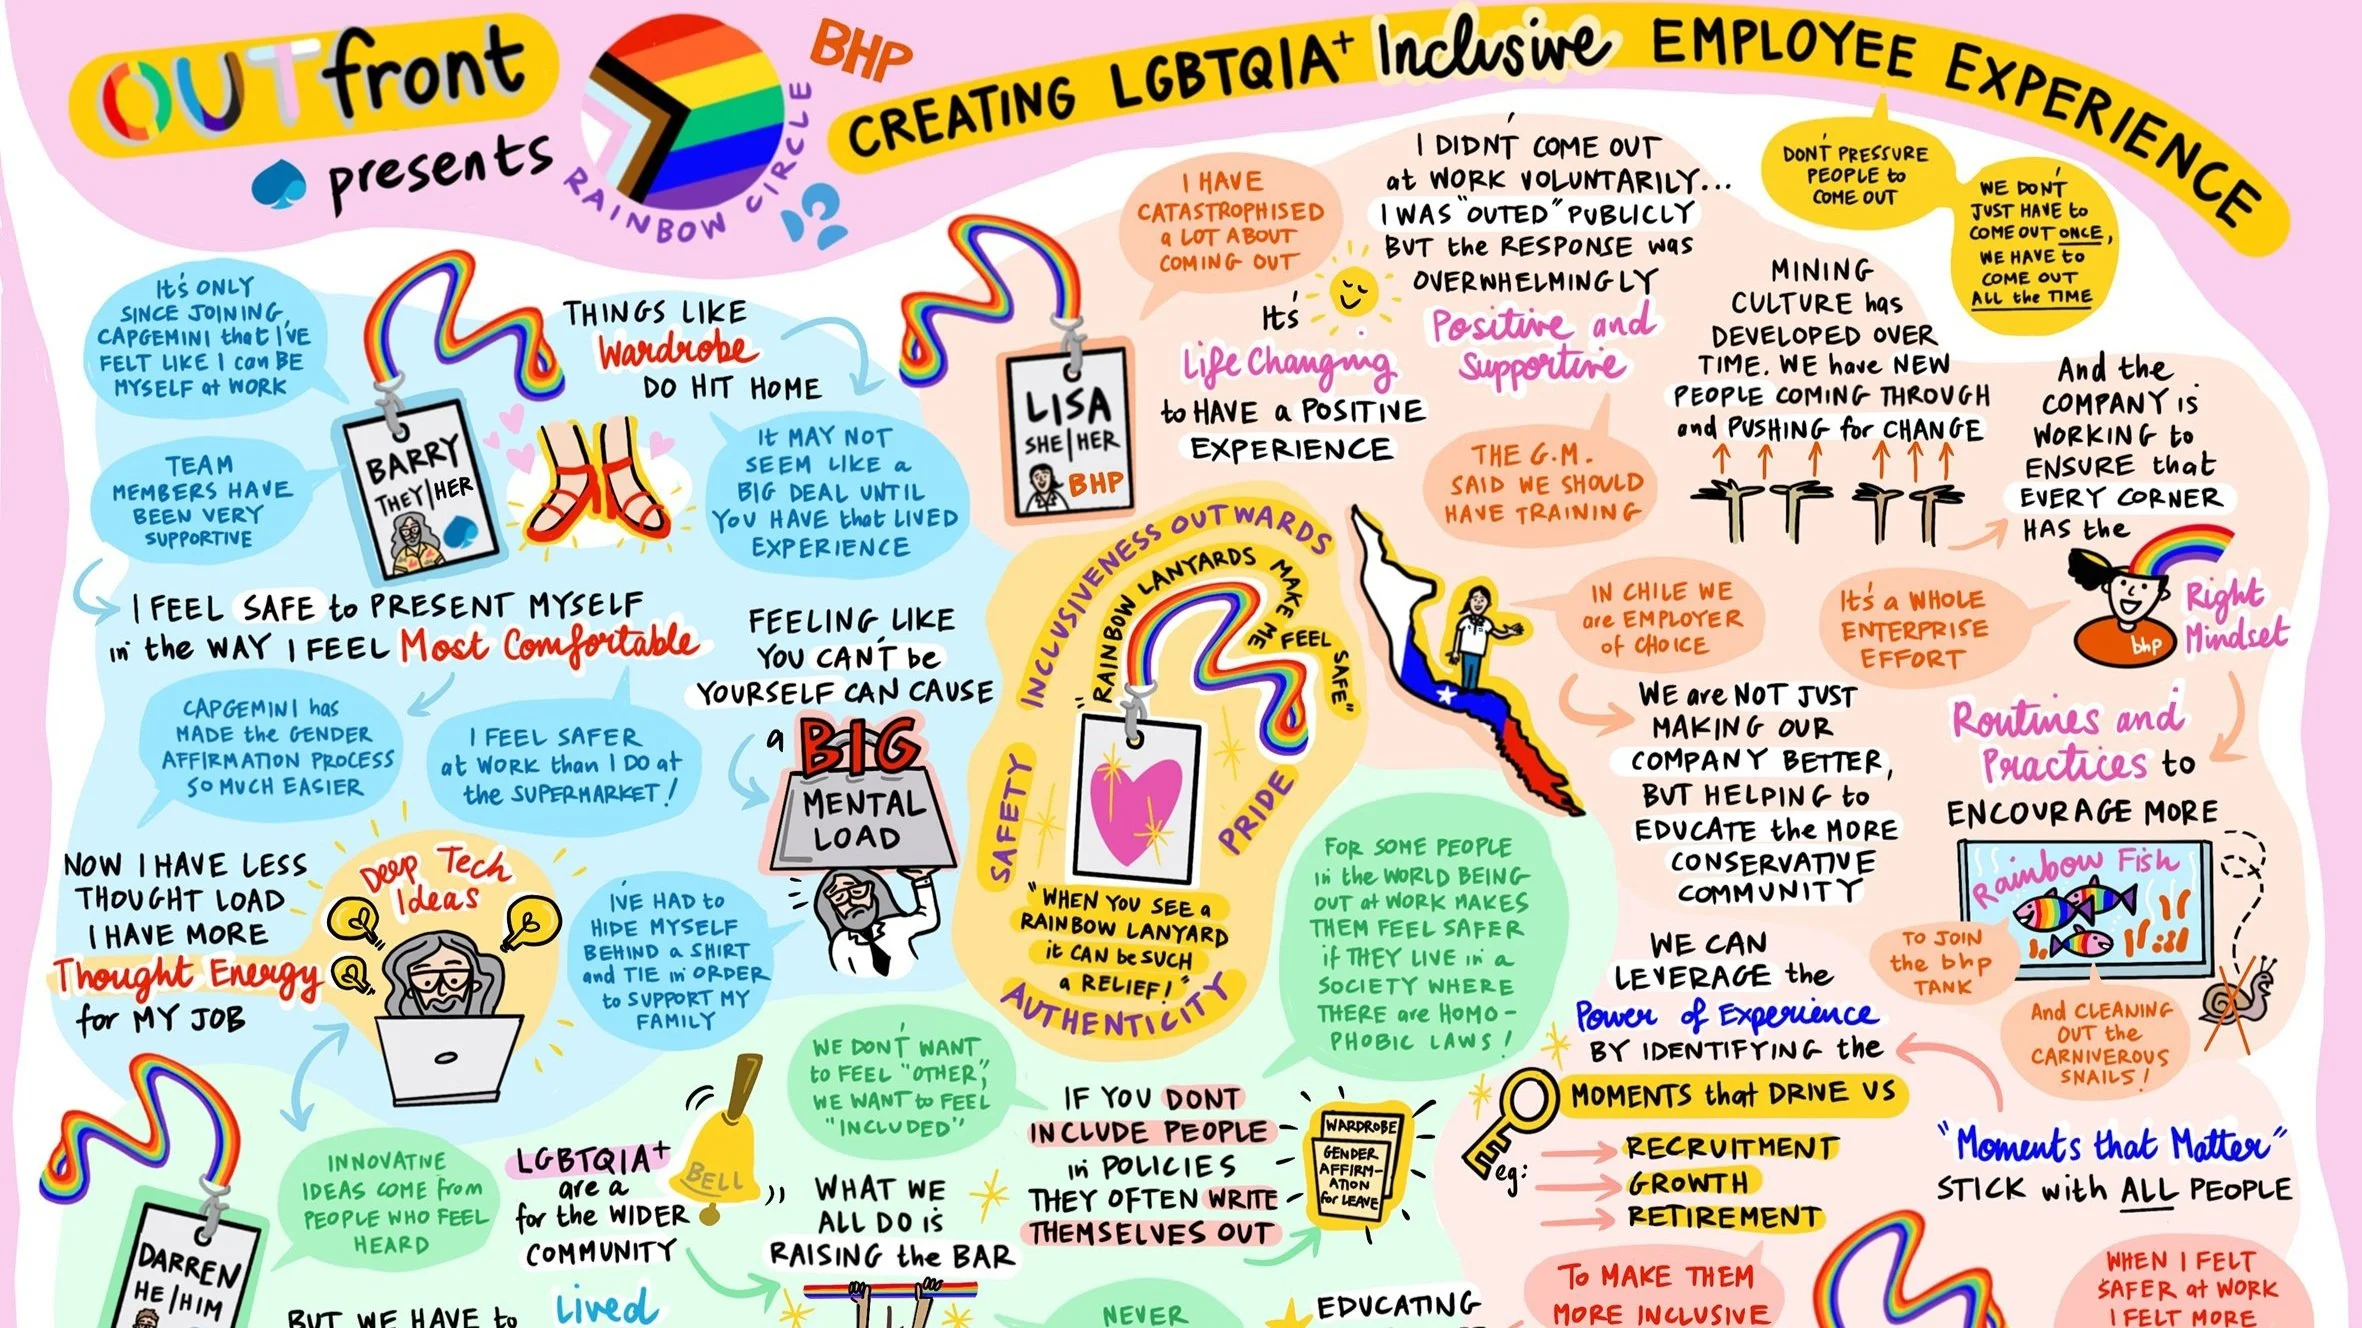 OUTfront
presents
RAINBOW CIRCLE
BHP
CREATING LGBTQIA+ Inclusive EMPLOYEE EXPERIENCE
It's ONLY
SINCE JOINING
CAPGEMINI that I'VE
FELT LIKE I can BE
MYSELF at WORK
TEAM
MEMBERS HAVE
BEEN VERY
SUPPORTIVE
BARRY
THEY/HER
THINGS LIKE
Wardrobe
DO HIT HOME
IT MAY NOT
SEEM LIKE a
BIG DEAL UNTIL
YOU HAVE that LIVED
EXPERIENCE
I FEEL SAFE to PRESENT MYSELF
in the WAY I FEEL Most Comfortable
CAPGEMINI has
MADE the GENDER
AFFIRMATION PROCESS
SO MUCH EASIER
I FEEL SAFER
at WORK than I DO at
the SUPERMARKET!
FEELING LIKE
YOU CAN'T be
YOURSELF CAN CAUSE
a BIG
MENTAL
LOAD
I'VE HAD to
HIDE MYSELF
BEHIND a SHIRT
and TIE in ORDER
to SUPPORT MY
FAMILY
NOW I HAVE LESS
THOUGHT LOAD
I HAVE MORE
Thought Energy
for MY JOB
Deep Tech
Ideas
I HAVE
CATASTROPHISED
a LOT ABOUT
COMING OUT
LISA
SHE/HER
BHP
It's
Life Changing
to HAVE a POSITIVE
EXPERIENCE
I DIDN'T COME OUT
at WORK VOLUNTARILY...
I WAS "OUTED" PUBLICLY
BUT the RESPONSE WAS
OVERWHELMINGLY
Positive and
Supportive
THE G.M.
SAID WE SHOULD
HAVE TRAINING
DON'T PRESSURE
PEOPLE to
COME OUT
WE DON'T
JUST HAVE to
COME OUT ONCE,
WE HAVE to
COME OUT
ALL the TIME
MINING
CULTURE has
DEVELOPED OVER
TIME. WE have NEW
PEOPLE COMING THROUGH
and PUSHING for CHANGE
And the
COMPANY IS
WORKING to
ENSURE that
EVERY CORNER
HAS the
Right
Mindset
bhp
IT'S a WHOLE
ENTERPRISE
EFFORT
IN CHILE WE
are EMPLOYER
of CHOICE
WE are NOT JUST
MAKING OUR
COMPANY BETTER,
BUT HELPING to
EDUCATE the MORE
CONSERVATIVE
COMMUNITY
Routines and
Practices to
ENCOURAGE MORE
Rainbow Fish
TO JOIN
the bhp
TANK
And CLEANING
OUT the
CARNIVEROUS
SNAILS!
INCLUSIVENESS OUTWARDS
"RAINBOW LANYARDS MAKE
ME FEEL SAFE"
SAFETY
PRIDE
"WHEN YOU SEE a
RAINBOW LANYARD
it CAN be SUCH
a RELIEF!"
AUTHENTICITY
FOR SOME PEOPLE
in the WORLD BEING
OUT at WORK MAKES
THEM FEEL SAFER
if THEY LIVE in a
SOCIETY WHERE
THERE are HOMO-
PHOBIC LAWS!
WE CAN
LEVERAGE the
Power of Experience
BY IDENTIFYING the
MOMENTS that DRIVE US
eg:
RECRUITMENT
GROWTH
RETIREMENT
"Moments that Matter"
STICK with ALL PEOPLE
TO MAKE THEM
MORE INCLUSIVE
WHEN I FELT
SAFER at WORK
I FELT MORE
DARREN
HE/HIM
INNOVATIVE
IDEAS COME from
PEOPLE WHO FEEL
HEARD
LGBTQIA+
are a
BELL
for the WIDER
COMMUNITY
BUT WE HAVE to
Lived
WE DON'T WANT
to FEEL "OTHER",
WE WANT to FEEL
"INCLUDED"
WHAT WE
ALL DO is
RAISING the BAR
IF YOU DONT
INCLUDE PEOPLE
in POLICIES
THEY OFTEN WRITE
THEMSELVES OUT
WARDROBE
GENDER
AFFIRM-
ATION
for LEAVE
NEVER
EDUCATING